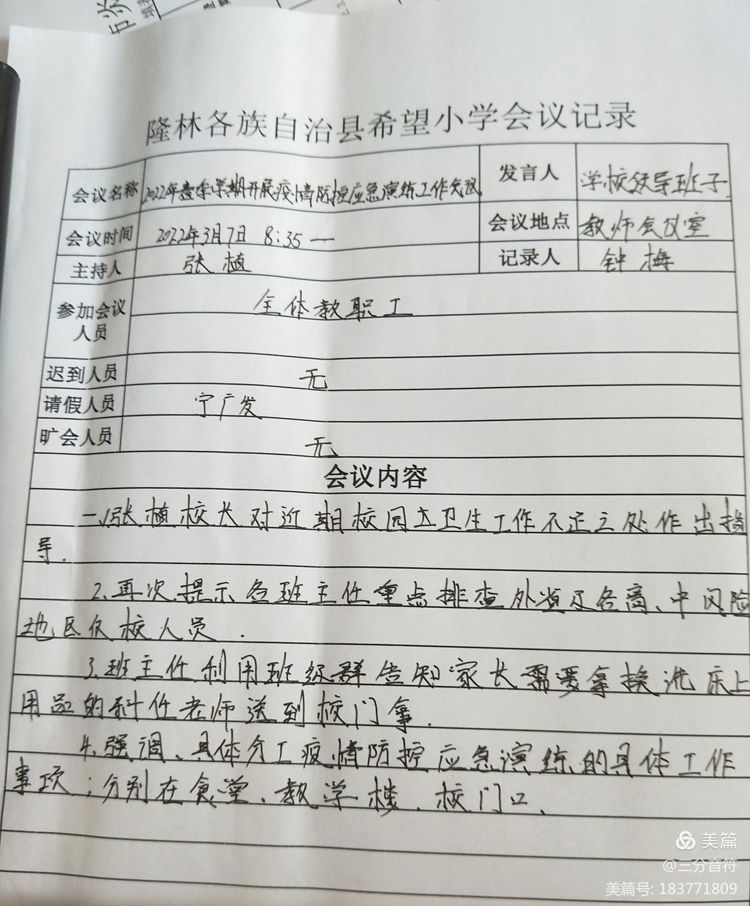 隆林各族自治县希望小学会议记录
会议名称 2022年春季学期开展疫情防控应急演练工作会议 发言人 学校领导班子
会议时间 2022年3月7日 8:35— 会议地点 教师会议室
主持人 张植 记录人 钟梅
参加会议人员 全体教职工
迟到人员 无
请假人员 宁广发
旷会人员 无
会议内容
一、张植校长对近期校园卫生工作不足之处作出指
导.
2.再次提示各班主任重点排查外省及各高、中风险
地区返校人员.
3.班主任利用班级群告知家长需要拿换洗床上
用品的科任老师送到校门拿.
4.强调、具体分工疫情防控应急演练的具体工作
事项;分别在食堂、教学楼、校门口、
美篇
@三分音符
美篇号: 183771809